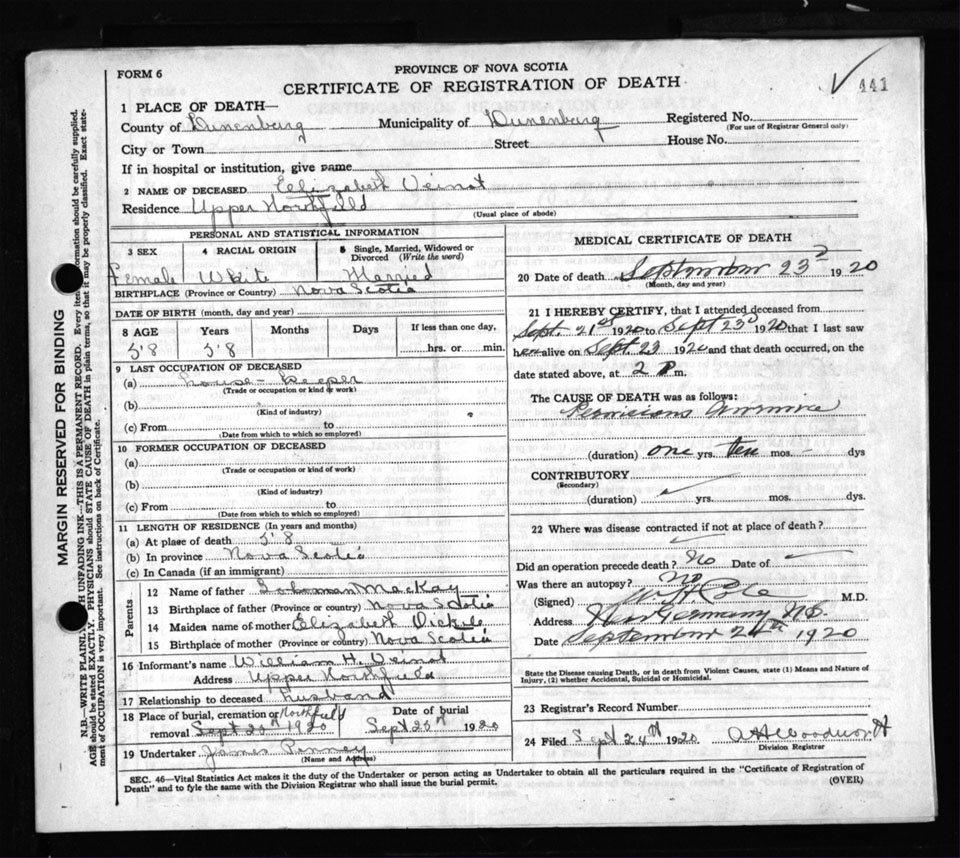 FORM 6
PROVINCE OF NOVA SCOTIA
CERTIFICATE OF REGISTRATION OF DEATH
441
1 PLACE OF DEATH—
County of Lunenburg Municipality of Lunenburg Registered No.
(For use of Registrar General only)
City or Town Street House No.
If in hospital or institution, give name
2 NAME OF DECEASED Elizabeth Veinot
Residence Upper Northfield
(Usual place of abode)
PERSONAL AND STATISTICAL INFORMATION
3 SEX 4 RACIAL ORIGIN 5 Single, Married, Widowed or Divorced (Write the word)
Female White Married
BIRTHPLACE (Province or Country) Nova Scotia
DATE OF BIRTH (month, day and year)
8 AGE Years Months Days If less than one day,
58 58 hrs. or min.
9 LAST OCCUPATION OF DECEASED
(a) House-Keeper
(Trade or occupation or kind of work)
(b)
(Kind of industry)
(c) From to
(Date from which to which so employed)
10 FORMER OCCUPATION OF DECEASED
(a)
(Trade or occupation or kind of work)
(b)
(Kind of industry)
(c) From to
(Date from which to which so employed)
11 LENGTH OF RESIDENCE (In years and months)
(a) At place of death 58
(b) In province Nova Scotia
(c) In Canada (if an immigrant)
Parents
12 Name of father Soloman MacKay
13 Birthplace of father (Province or Country) Nova Scotia
14 Maiden name of mother Elizabeth
15 Birthplace of mother (Province or Country) Nova Scotia
16 Informant's name William H. Veinot
Address Upper Northfield
17 Relationship to deceased Husband
18 Place of burial, cremation or removal Northfield Date of burial
Sept 25th 1920 Sept 25th 1920
19 Undertaker James Penney
(Name and Address)
MEDICAL CERTIFICATE OF DEATH
20 Date of death September 23d 1920
(Month, day and year)
21 I HEREBY CERTIFY, that I attended deceased from
Sept. 21st 1920 to Sept 23d 1920 that I last saw
her alive on Sept. 23 1920 and that death occurred, on
date stated above, at 2 P m.
The CAUSE OF DEATH was as follows:
Pernicious
(duration) one yrs. ten mos. - dys
CONTRIBUTORY
(Secondary)
(duration) yrs. mos. dys.
22 Where was disease contracted if not at place of death?
Did an operation precede death? No Date of
Was there an autopsy? No
(Signed) Cole M.D.
Address New Germany N.S.
Date September 24th 1920
State the Disease causing Death, or in death from Violent Causes, state (1) Means and Nature of Injury, (2) whether Accidental, Suicidal or Homicidal.
23 Registrar's Record Number
24 Filed Sept 24th 1920 A H Woodworth
Division Registrar
SEC. 46—Vital Statistics Act makes it the duty of the Undertaker or person acting as Undertaker to obtain all the particulars required in the "Certificate of Registration of
Death" and to fyle the same with the Division Registrar who shall issue the burial permit.
(OVER)
MARGIN RESERVED FOR BINDING
N.B.—WRITE PLAINLY UNFADING INK—THIS IS A PERMANENT RECORD. Every item information should be carefully supplied.
AGE should be stated EXACTLY. PHYSICIANS should STATE CAUSE OF DEATH in plain terms, so that it may be properly classified. Exact state-
ment of OCCUPATION is very important. See instructions on back of Certificate.